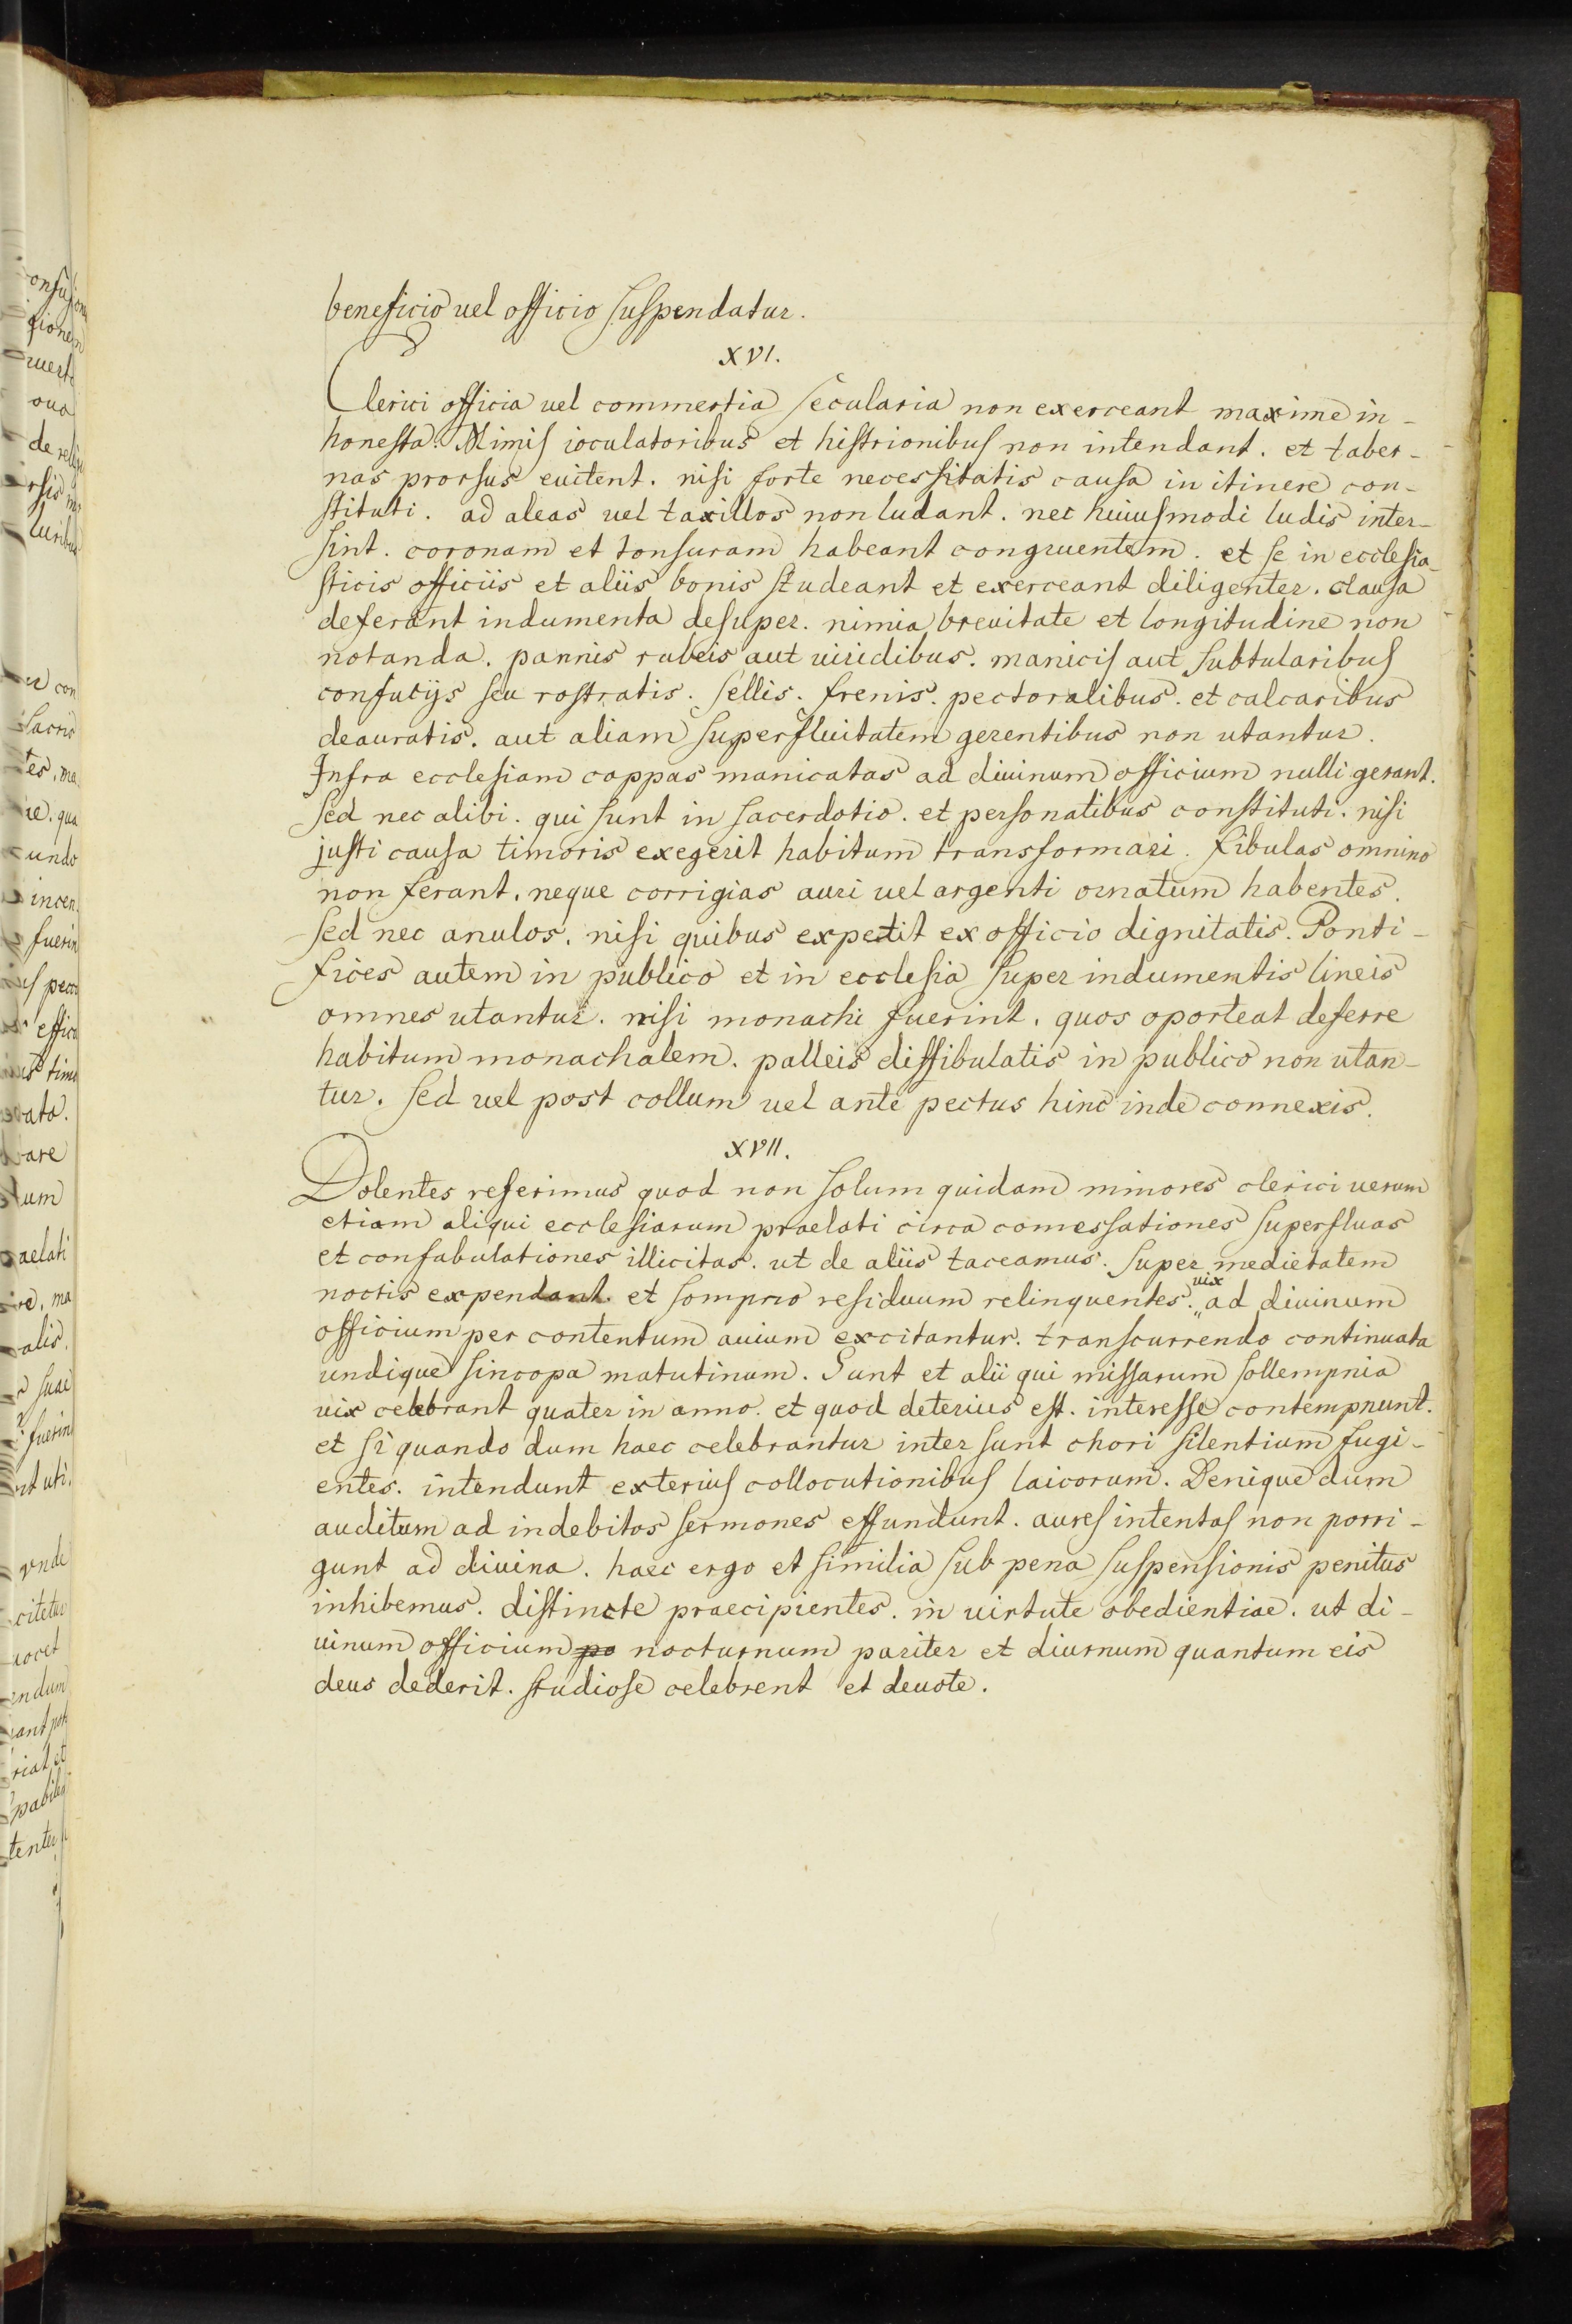 beneficio uel officio suspendatur.
XVI.
Clerici officia uel commertia secularia non exerceant maxime in-
honesta. Mimis ioculatoribus et histrionibus non intendant. et taber-
nas prorsus euitent. nisi forte necessitatis causa in itinere con-
stituti. ad aleas uel taxillos non ludant. nec huiusmodi ludis inter-
sint. coronam et tonsuram habeant congruentem. et se in ecclesia-
sticis officiis et aliis bonis studeant et exerceant diligenter. clausa
deferant indumenta desuper. nimia breuitate et longitudine non
notanda. pannis rubeis aut uiridibus. manicis aut subtularibus
consutijs seu rostratis. sellis. frenis. pectoralibus. et calcaribus
deauratis. aut aliam superfluitatem gerentibus non utantur.
Infra ecclesiam cappas manicatas ad diuinum officium nulli gerant.
sed nec alibi. qui sunt in sacerdotio. et personatibus constituti. nisi
justi causa timoris exegerit habitum transformari. fibulas omnino
non ferant. neque corrigias auri uel argenti ornatum habentes.
sed nec anulos. nisi quibus expetit ex officio dignitatis. Ponti-
fices autem in publico et in ecclesia super indumentis lineis
omnes utantur. nisi monachi fuerint. quos oporteat deferre
habitum monachalem. palleis diffibulatis in publico non utan-
tur. sed uel post collum uel ante pectus hinc inde connexis.
XVII.
Dolentes referimus quod non solum quidam minores clerici uerum
etiam aliqui ecclesiarum praelati circa comessationes superfluas
et confabulationes illicitas. ut de aliis taceamus. super medietatem
noctis expendant. et sompno residuum relinquentes. uix ad diuinum
officium per contentum auium excitantur. transcurrendo continuata
undique sincopa matutinum. Sunt et alii qui missarum sollempnia
uix celebrant quater in anno. et quod deterius est. interesse contempnunt.
et si quando dum haec celebrantur inter sunt chori silentium fugi-
entes. intendunt exterius collocutionibus laicorum. Denique dum
auditum ad indebitos sermones effundunt. aures intentas non porri-
gunt ad diuina. haec ergo et similia sub pena suspensionis penitus
inhibemus. distincte praecipientes. in uirtute obedientiae. ut di-
uinum officium po nocturnum pariter et diurnum quantum eis
deus dederit. studiose celebrent et deuote.